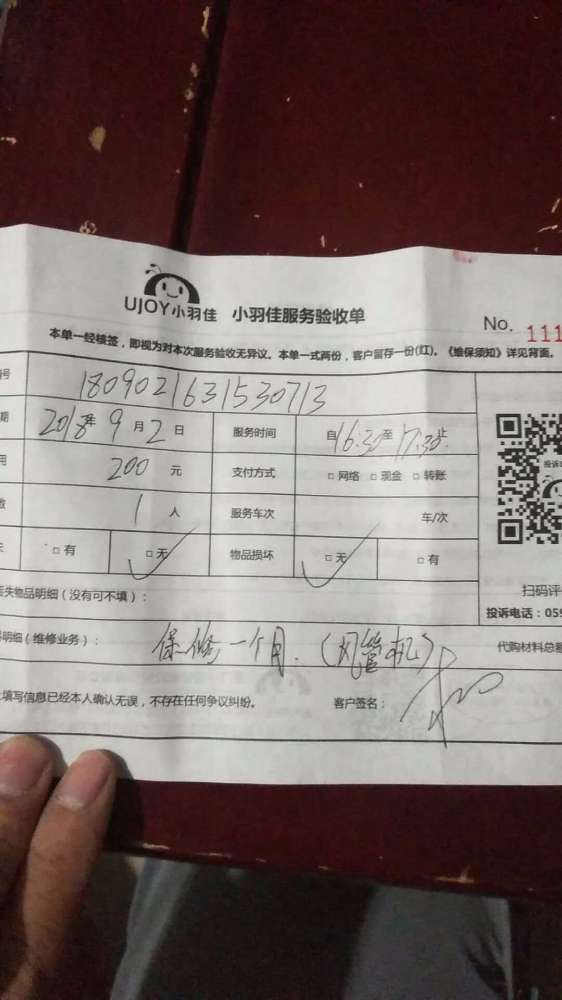 UJOY小羽佳 小羽佳服务验收单
No. 111
本单一经核签，即视为对本次服务验收无异议。本单一式两份，客户留存一份(红)。《维保须知》详见背面。
号 1809021631530713
期 2018年9月2日 服务时间 自16:30至17:30止
用 200元 支付方式 □网络 □现金 □转账
数 1人 服务车次 车/次
失 □有 □无 物品损坏 □无 □有
丢失物品明细（没有可不填）：
扫码评
投诉电话：059
明细（维修业务）： 保修一个月.（风管机）
代购材料总额
填写信息已经本人确认无误，不存在任何争议纠纷。 客户签名：